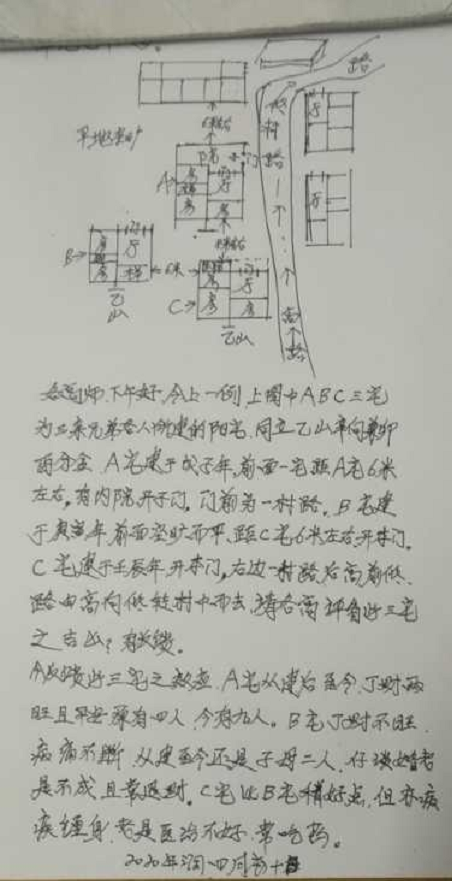 路
村
路
高
路
平地
6米左右
院
门
A→
房
厅
B→
房
厅
6米
C→
房
厅
房
乙
山
乙山
厅
下午好,今上一例,上图中ABC三宅
为三家兄弟各人所建的阳宅,同立乙山辛向兼卯
酉分金,A宅建于戊子年,前面一宅距A宅6米
左右,有内院开子门,门前为一村路。B宅建
于庚寅年,前面空旷而平,距C宅6米左右开
门。
C宅建于壬辰年,开门,右边一村路,后高前低,
路由高向低 村中而去,请各高评 此三宅
之吉凶,有反馈。
反馈此三宅之 应,A宅从建后至今,丁财两
旺且平安,原有四人,今有九人。B宅丁财不旺,
病痛不断,从建至今还是子母二人,仔谈婚
是不成且常退财。C宅比B宅稍好点,但亦病
疾缠身,老是医治不好,常吃药。
2020年闰四月